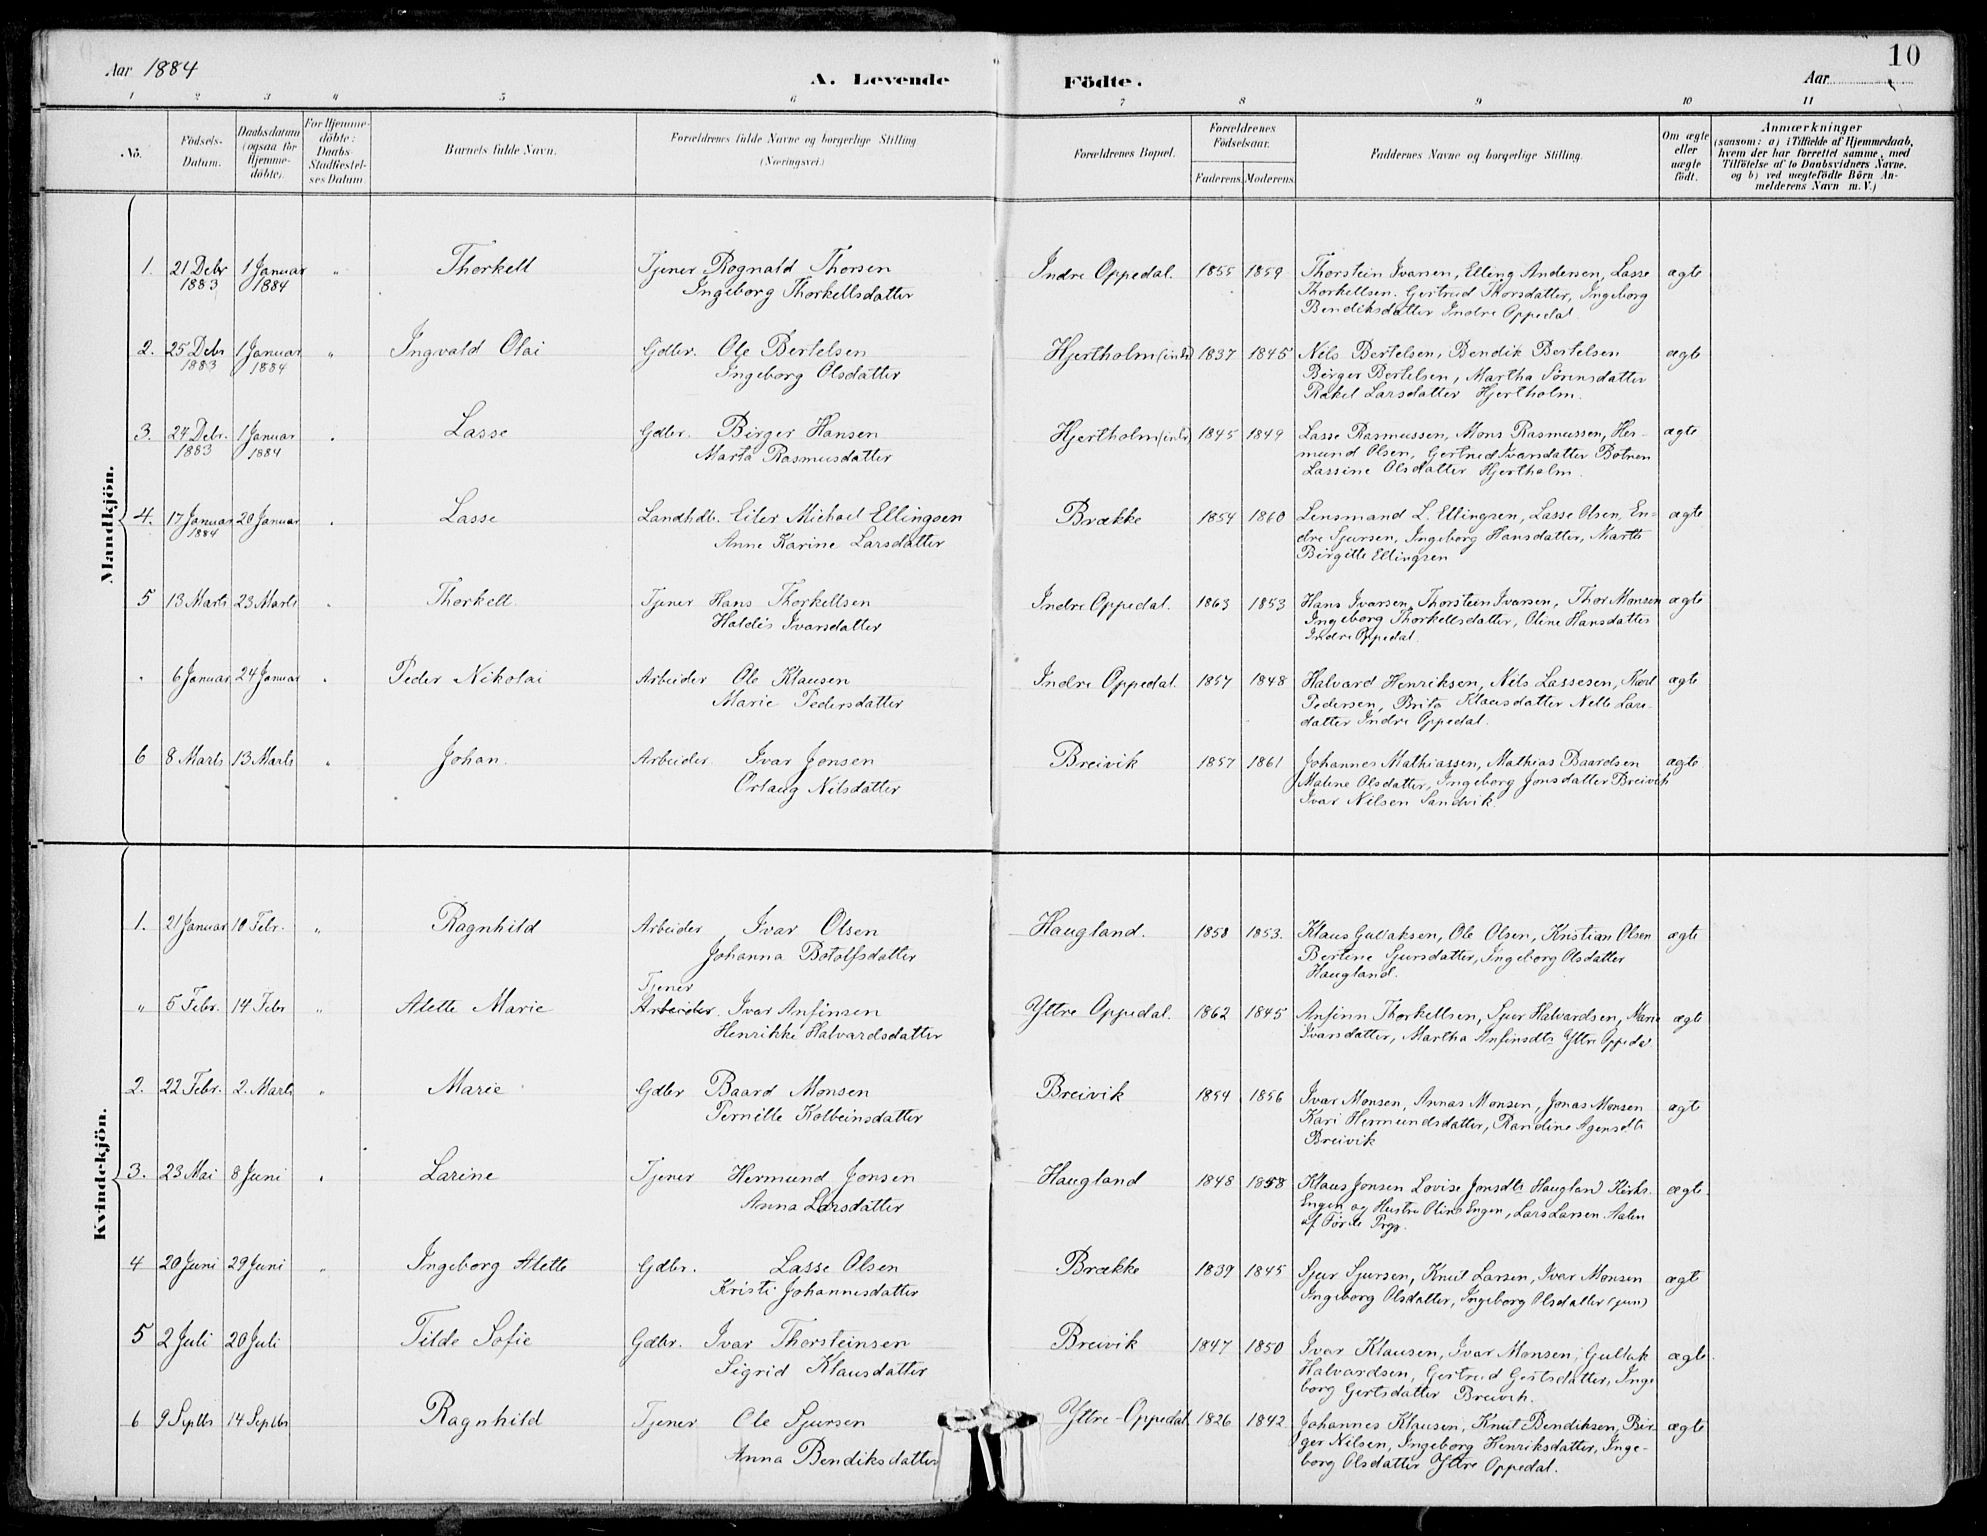 Aar 1884
A. Levende Födte.
Aar
10
1 2 3 4 5 6 7 8 9 10 11
Nö.
Födsels-Datum.
Daabsdatum (ogsaa for Hjemme-döbte).
For Hjemme-döbte: Daabs-Stadfæstel-ses Datum
Barnets fulde Navn.
Forældrenes fulde Navne og borgerlige Stilling (Næringsvei.)
Forældrenes Bopæl.
Forældrenes Födselsaar.
Faderens. Moderens.
Faddernes Navne og borgerlige Stilling.
Om ægte eller uægte födt.
Anmærkninger
(saasom: a) i Tilfælde af Hjemmedaab, hvem der har forrettet samme, med Tilföielse af to Daabsvidners Navne. og b) ved uægtefödte Börn Anmelderens Navn m. V.)
Mandkjön.
1. 21 Debr 1 Januar " Thorkell Tjener Rognald Thorsen Indre Oppedal. 1855 1859 Thorstein Ivarsen, Elling Andersen, Lasse ægte
1883 1884 Ingeborg Thorkellsdatter Thorkellsen. Gertrud Thorsdatter, Ingeborg
Bendiksdatter Indre Oppedal.
2. 25 Debr 1 Januar " Ingvald Olai Gdbr. Ole Bertelsen Hjertholm (indr) 1837 1845 Nils Bertelsen, Bendik Bertelsen ægte
1883 1884 Ingeborg Olsdatter Birger Bertelsen, Martha Sørensdatter
Rakel Larsdatter Hjertholm.
3. 24 Debr. 1 Januar " Lasse Gdbr. Birger Hansen Hjertholm (indr) 1845 1849 Lasse Rasmussen, Mons Rasmussen, Her- ægte
1883 1884 Marta Rasmusdatter mund Olsen, Gertrud Ivarsdatter Botnen
Lassine Olsdatter Hjertholm.
4. 17 Januar 20 Januar " Lasse Landhdl. Eiler Michael Ellingsen Brække 1854 1860 Lensmand L. Ellingsen, Lasse Olsen, En- ægte
1884 Anne Karine Larsdatter dre Sjursen, Ingeborg Hansdatter, Marthe
Birgitte Ellingsen
5 13 Marts 23 Marts " Thorkell. Tjener Hans Thorkellsen Indre Oppedal. 1863 1853 Hans Ivarsen, Thorstein Ivarsen, Thor Monsen ægte
Haldis Ivarsdatter Ingeborg Thorkellsdatter, Oline Hansdatter
Indre Oppedal.
" 6 Januar 24 Januar " Peder Nikolai Arbeider Ole Klausen Indre Oppedal. 1857 1848 Halvard Henriksen, Nils Lassesen, ægte
Marie Pedersdatter Pedersen, Brita Klausdatter Nelle Lars-
datter Indre Oppedal.
6 8 Marts 13 Marts " Johan. Arbeider. Ivar Jonsen Breivik 1857 1861 Johannes Mathiassen, Mathias Baardsen ægte
Orlaug Nilsdatter Malene Olsdatter, Ingeborg Jonsdatter Breivik
Ivar Nilsen Sandvik.
Kvindekjön.
1. 21 Januar 10 Febr. " Ragnhild Arbeider Ivar Olsen Haugland. 1858 1853. Klaus Gullaksen, Ole Olsen, Kristian Olsen ægte
Johanna Botolfsdatter Bertine Sjursdatter, Ingeborg Olsdatter
Haugland.
Tjener
" 5 Febr. 14 Febr " Alette Marie Arbeider. Ivar Anfinsen Yttre Oppedal. 1862 1845 Anfinn Thorkellsen, Sjur Halvardsen, Marie ægte
Henrikke Halvardsdatter Ivarsdatter, Martha Anfinsdtr Yttre Oppedal
2. 22 Febr. 2. Marts " Marie Gdbr Baard Monsen Breivik 1854 1856 Ivar Monsen, Annas Monsen, Jonas Monsen ægte
Pernille Kolbeinsdatter Kari Hermundsdatter, Randine Agensdtr
Breivik
3. 23 Mai 8 Juni " Larine Tjener Hermund Jonsen Haugland 1848 1858 Klaus Jonsen Lovise Jonsdtr Haugland Kirks. ægte
Anna Larsdatter Engen og Hustru Oline Engen, Lars Larsen Aalen
af Førde Prgp.
4 20 Juni 29 Juni " Ingeborg Alette Gdbr. Lasse Olsen Brække 1839 1845 Sjur Sjursen, Knut Larsen, Ivar Monsen ægte
Kristi Johannesdatter Ingeborg Olsdatter, Ingeborg Olsdatter (jun)
5 2 Juli 20 Juli Tilde Sofie Gdbr. Ivar Thorsteinsen Breivik 1847 1850 Ivar Klausen, Ivar Monsen, Gullak ægte.
Sigrid Klausdatter Halvardsen, Gertrud Gertsdatter, Inge
borg Gertsdatter Breivik.
6 9 Septbr 14 Septbr Ragnhild Tjener Ole Sjursen Yttre Oppedal 1826 1842 Johannes Klausen, Knut Bendiksen, Bir- ægte
Anna Bendiksdatter ger Nilsen, Ingeborg Henriksdatter, Inge-
borg Olsdatter Yttre Oppedal.